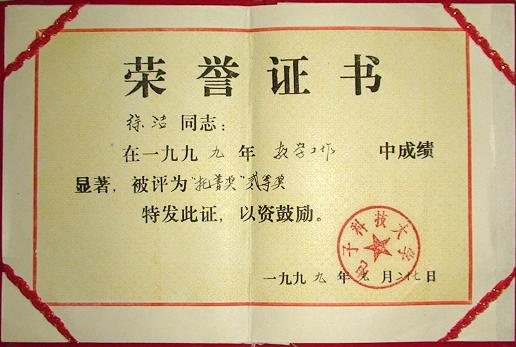 荣誉证书
徐洁同志：
在一九九九年教学工作中成绩
显著，被评为"托普奖"贰等奖
特发此证，以资鼓励。
电子科技大学
一九九九年九月二十七日